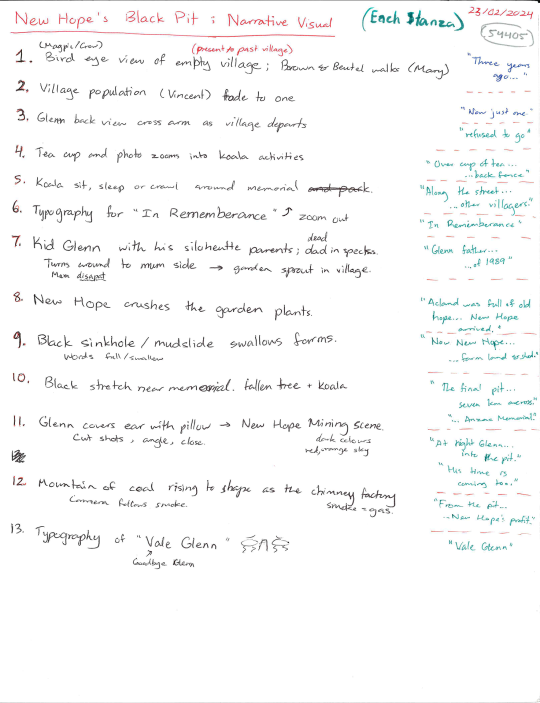 New Hope's Black Pit ; Narrative Visual (Each Stanza) 23/02/2024
54405
(Magpie/Crow) (present to past village)
1. Bird eye view of empty village ; Brown & Beutel walks (Mary) "Three years
ago..."
2. Village population (Vincent) fade to one
3. Glenn back view cross arm as village departs "Now just one."
"refused to go"
4. Tea cup and photo zoom into koala activities "Over cup of tea...
...back fence"
5. Koala sit, sleep or crawl around memorial and park. "Along the street...
...other villagers."
6. Typography for "In Rememberance" zoom out "In Rememberance"
7. Kid Glenn with his siloheutte parents ; dad in specks. "Glenn father...
dead
Turns around to mum side → garden sprout in village. ...of 1989"
Mum disapat
8. New Hope crushes the garden plants. "Acland was full of old
hope... New Hope
arrived."
9. Black sinkhole / mudslide swallows forms. "Now New Hope...
words fall/swallow ...farm land
10. Black stretch near memorial. fallen tree + koala "The final pit...
seven km across."
"... Anzac Memorial."
11. Glenn covers ear with pillow → New Hope Mining scene.
Cut shots, angle, close. dark colours
red, orange sky
"At night Glenn...
into the pit."
"His time is
coming too."
12. Mountain of coal rising to shape as the chimney factory
Camera follows smoke. smoke = gas.
"From the pit...
...New Hope's profit."
13. Typography of "Vale Glenn" "Vale Glenn"
Goodbye Glenn